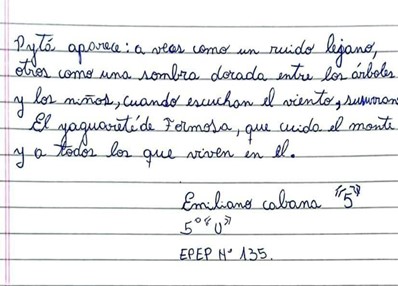 Pytá aparece: a veces como un ruido lejano,
otros como una sombra dorada entre los árboles
y los niños, cuando escuchan el viento, susurran
El yaguareté de Formosa, que cuida el monte
y a todos los que viven en el.
Emiliano cabana "5"
5° "U"
EPEP N° 135.